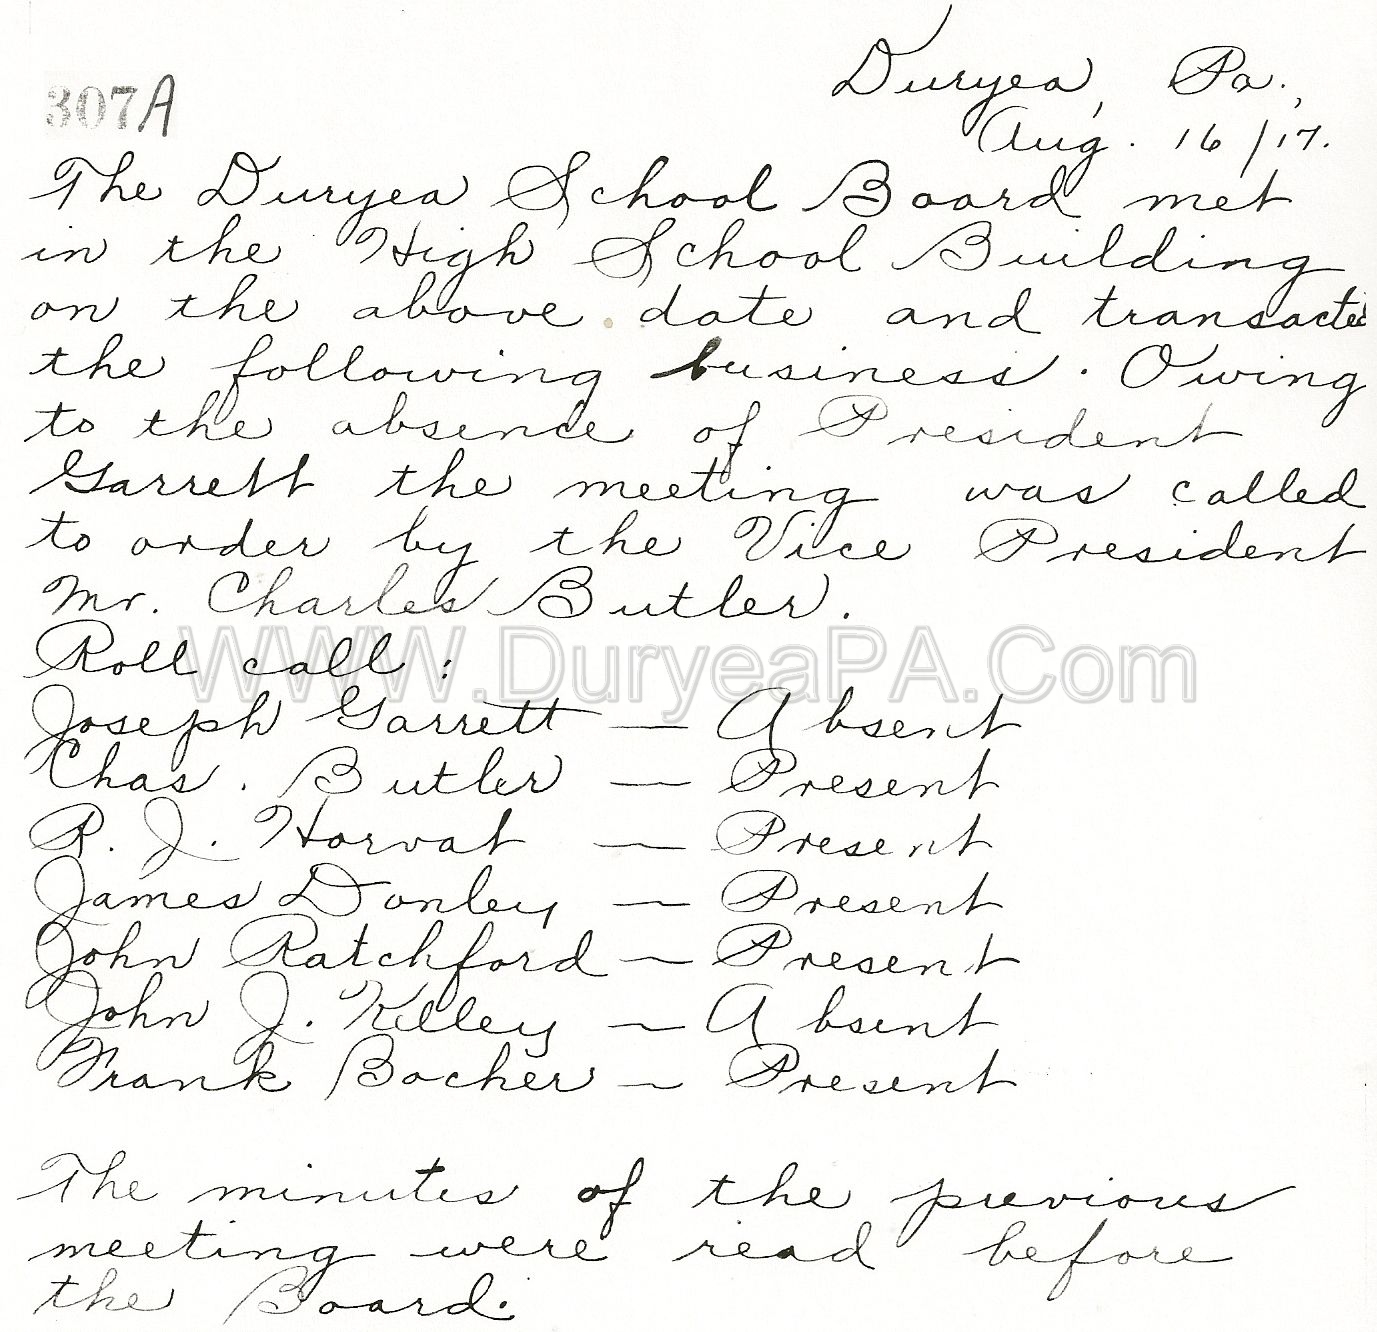 Duryea, Pa.,
307A
Aug. 16/17.
The Duryea School Board met
in the High School Building
on the above date and transacted
the following business. Owing
to the absence of President
Garrett the meeting was called
to order by the Vice President
Mr. Charles Butler.
WWW.DuryeaPA.Com
Roll call:
Joseph Garrett — Absent
Chas. Butler — Present
R. J. Horvat — Present
James Donley — Present
John Ratchford — Present
John J. Kelley — Absent
Frank Bocher — Present
The minutes of the previous
meeting were read before
the Board.